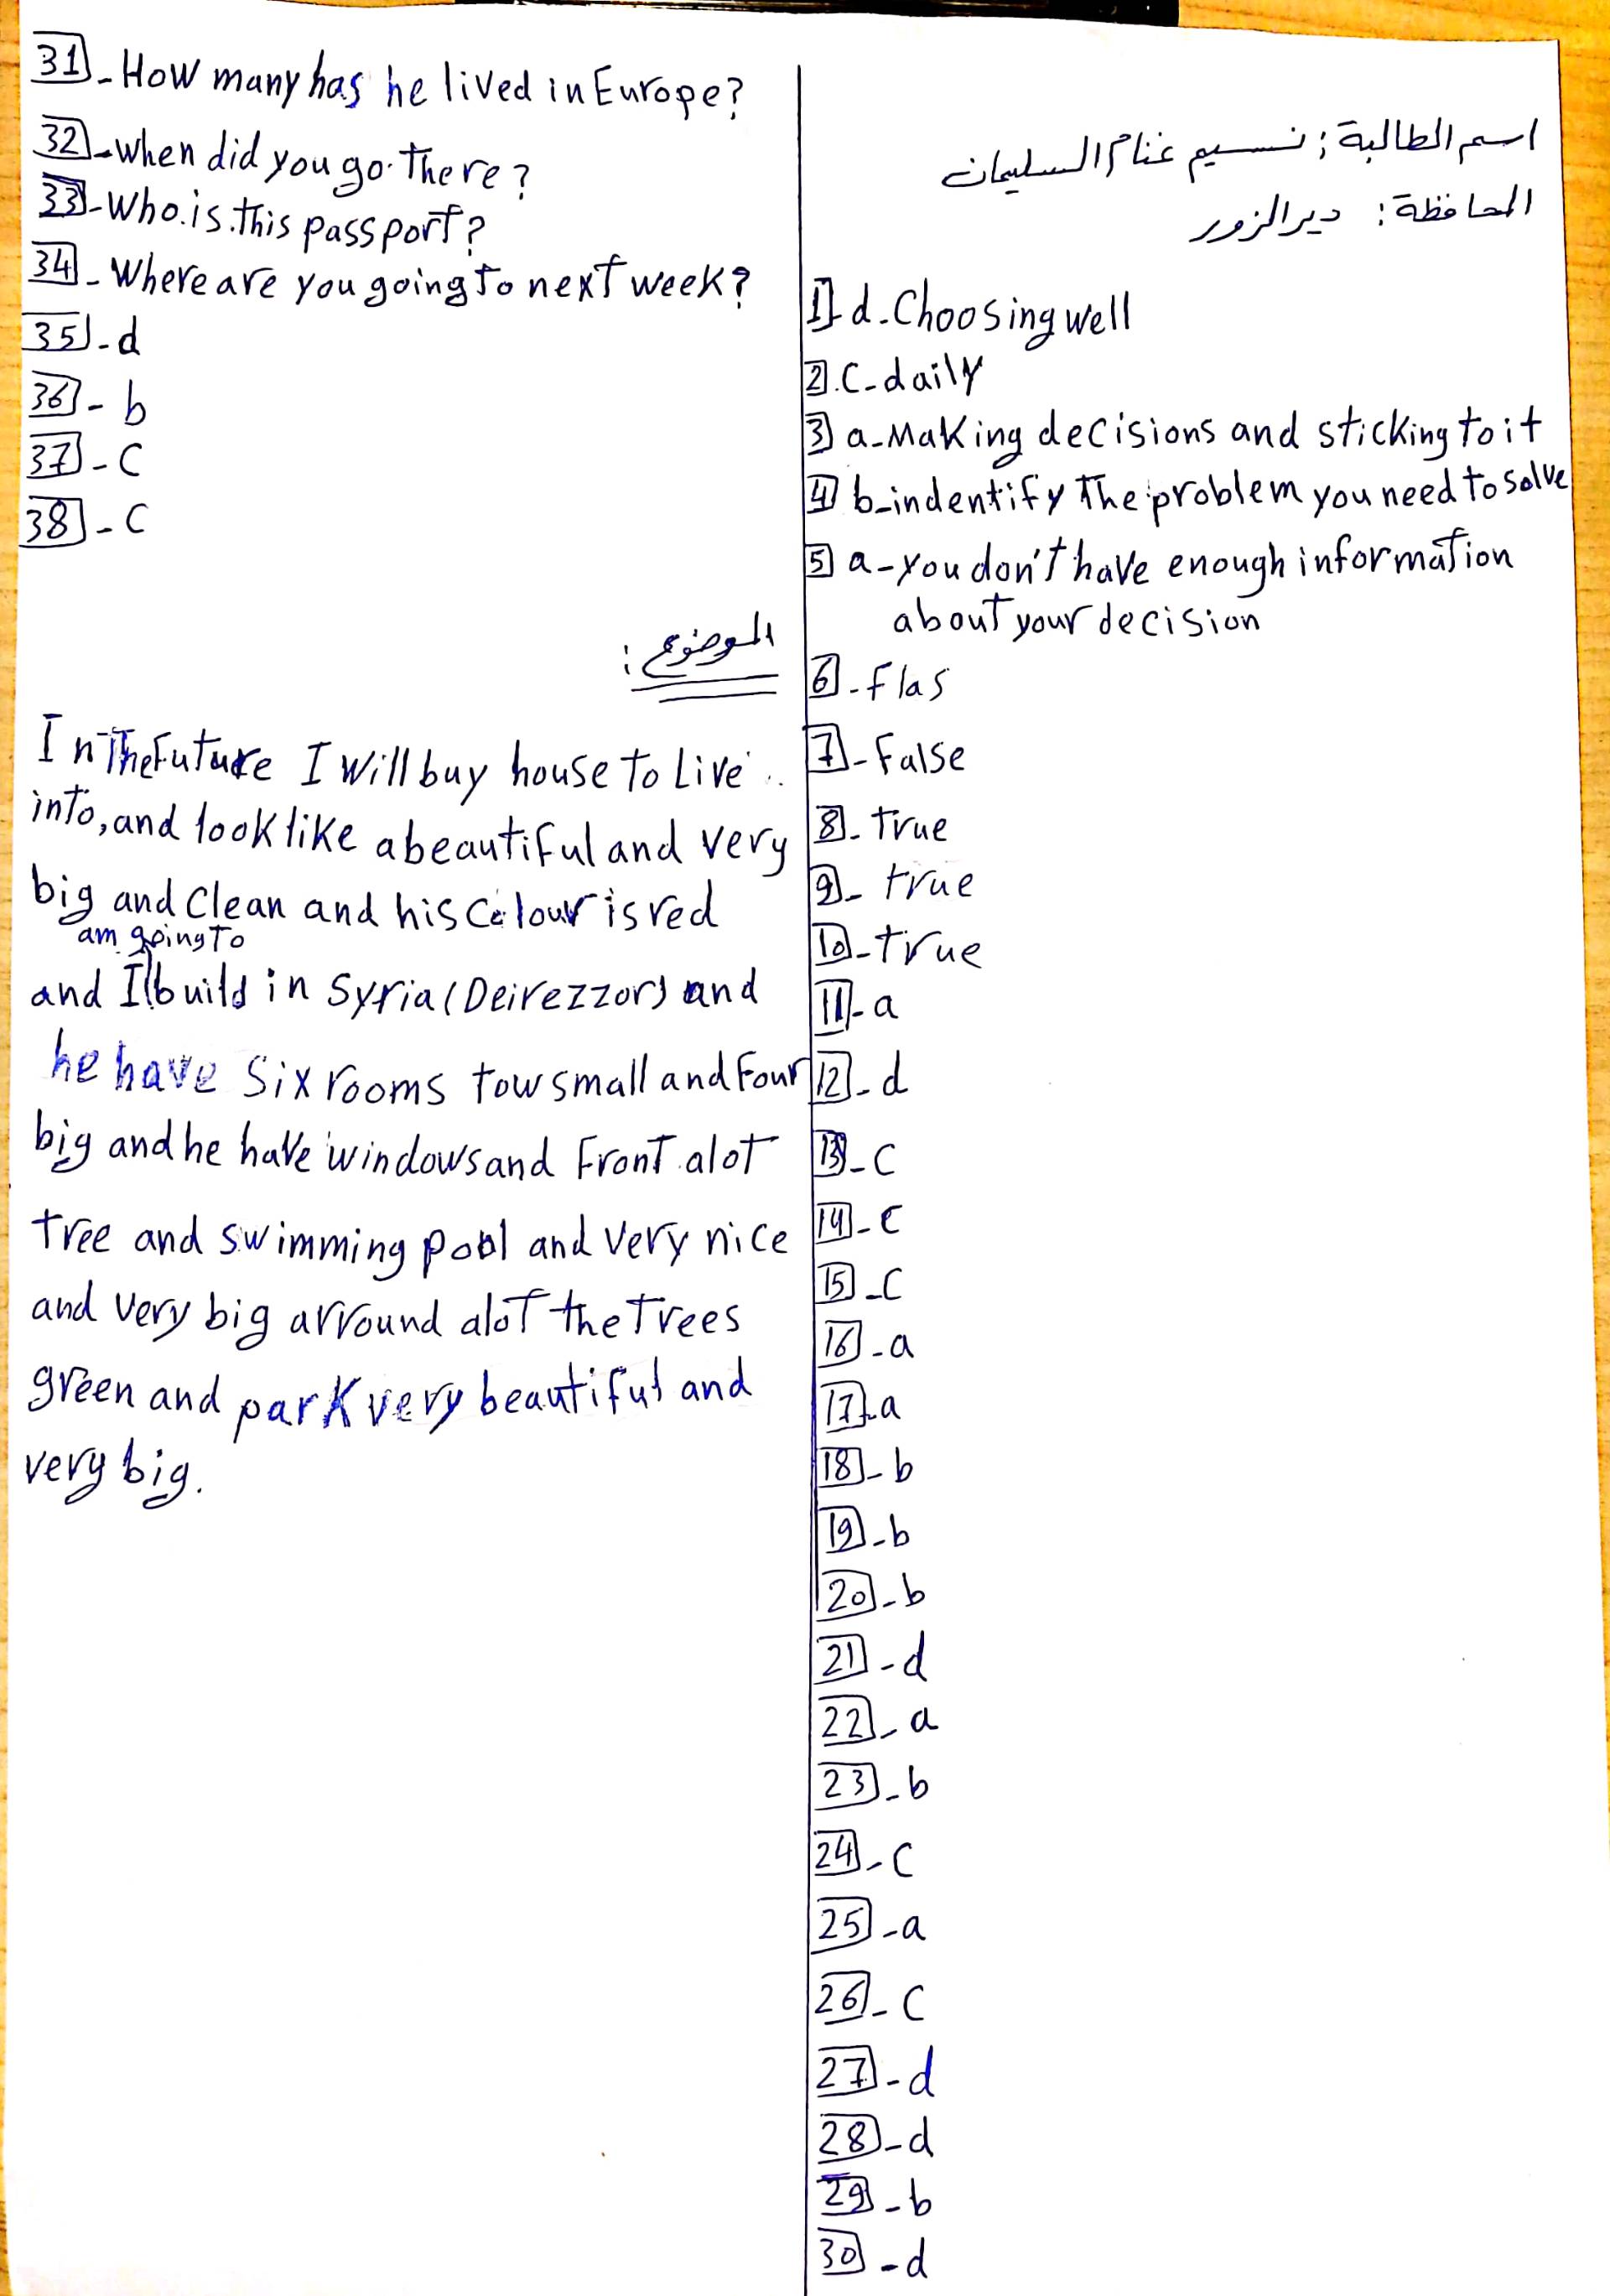 اسم الطالبة : نسيم غنام السليمان
المحافظة : ديرالزور
1- d-Choosing well
2. C-daily
3 a-Making decisions and sticking to it
4 b-indentify The problem you need to solve
5 a-you don't have enough information
about your decision
6-flas
7-False
8-true
9-true
10-true
11-a
12-d
13-c
14-c
15-C
16-a
17-a
18-b
19-b
20-b
21-d
22-a
23-b
24-C
25-a
26-C
27-d
28-d
29-b
30-d
31-How many has he lived in Europe?
32-when did you go There?
33-Who is this passport?
34-Where are you going to next week?
35-d
36-b
37-C
38-C
الموضوع :
In The Future I Will buy house to Live
into, and look like a beautiful and very
big and Clean and his Colour is red
am going To
and I build in Syria (Deirezzor) and
he have Six rooms tow small and Four
big and he have windows and Front alot
Tree and swimming pool and Very nice
and Very big arround alot the Trees
green and park very beautiful and
very big.